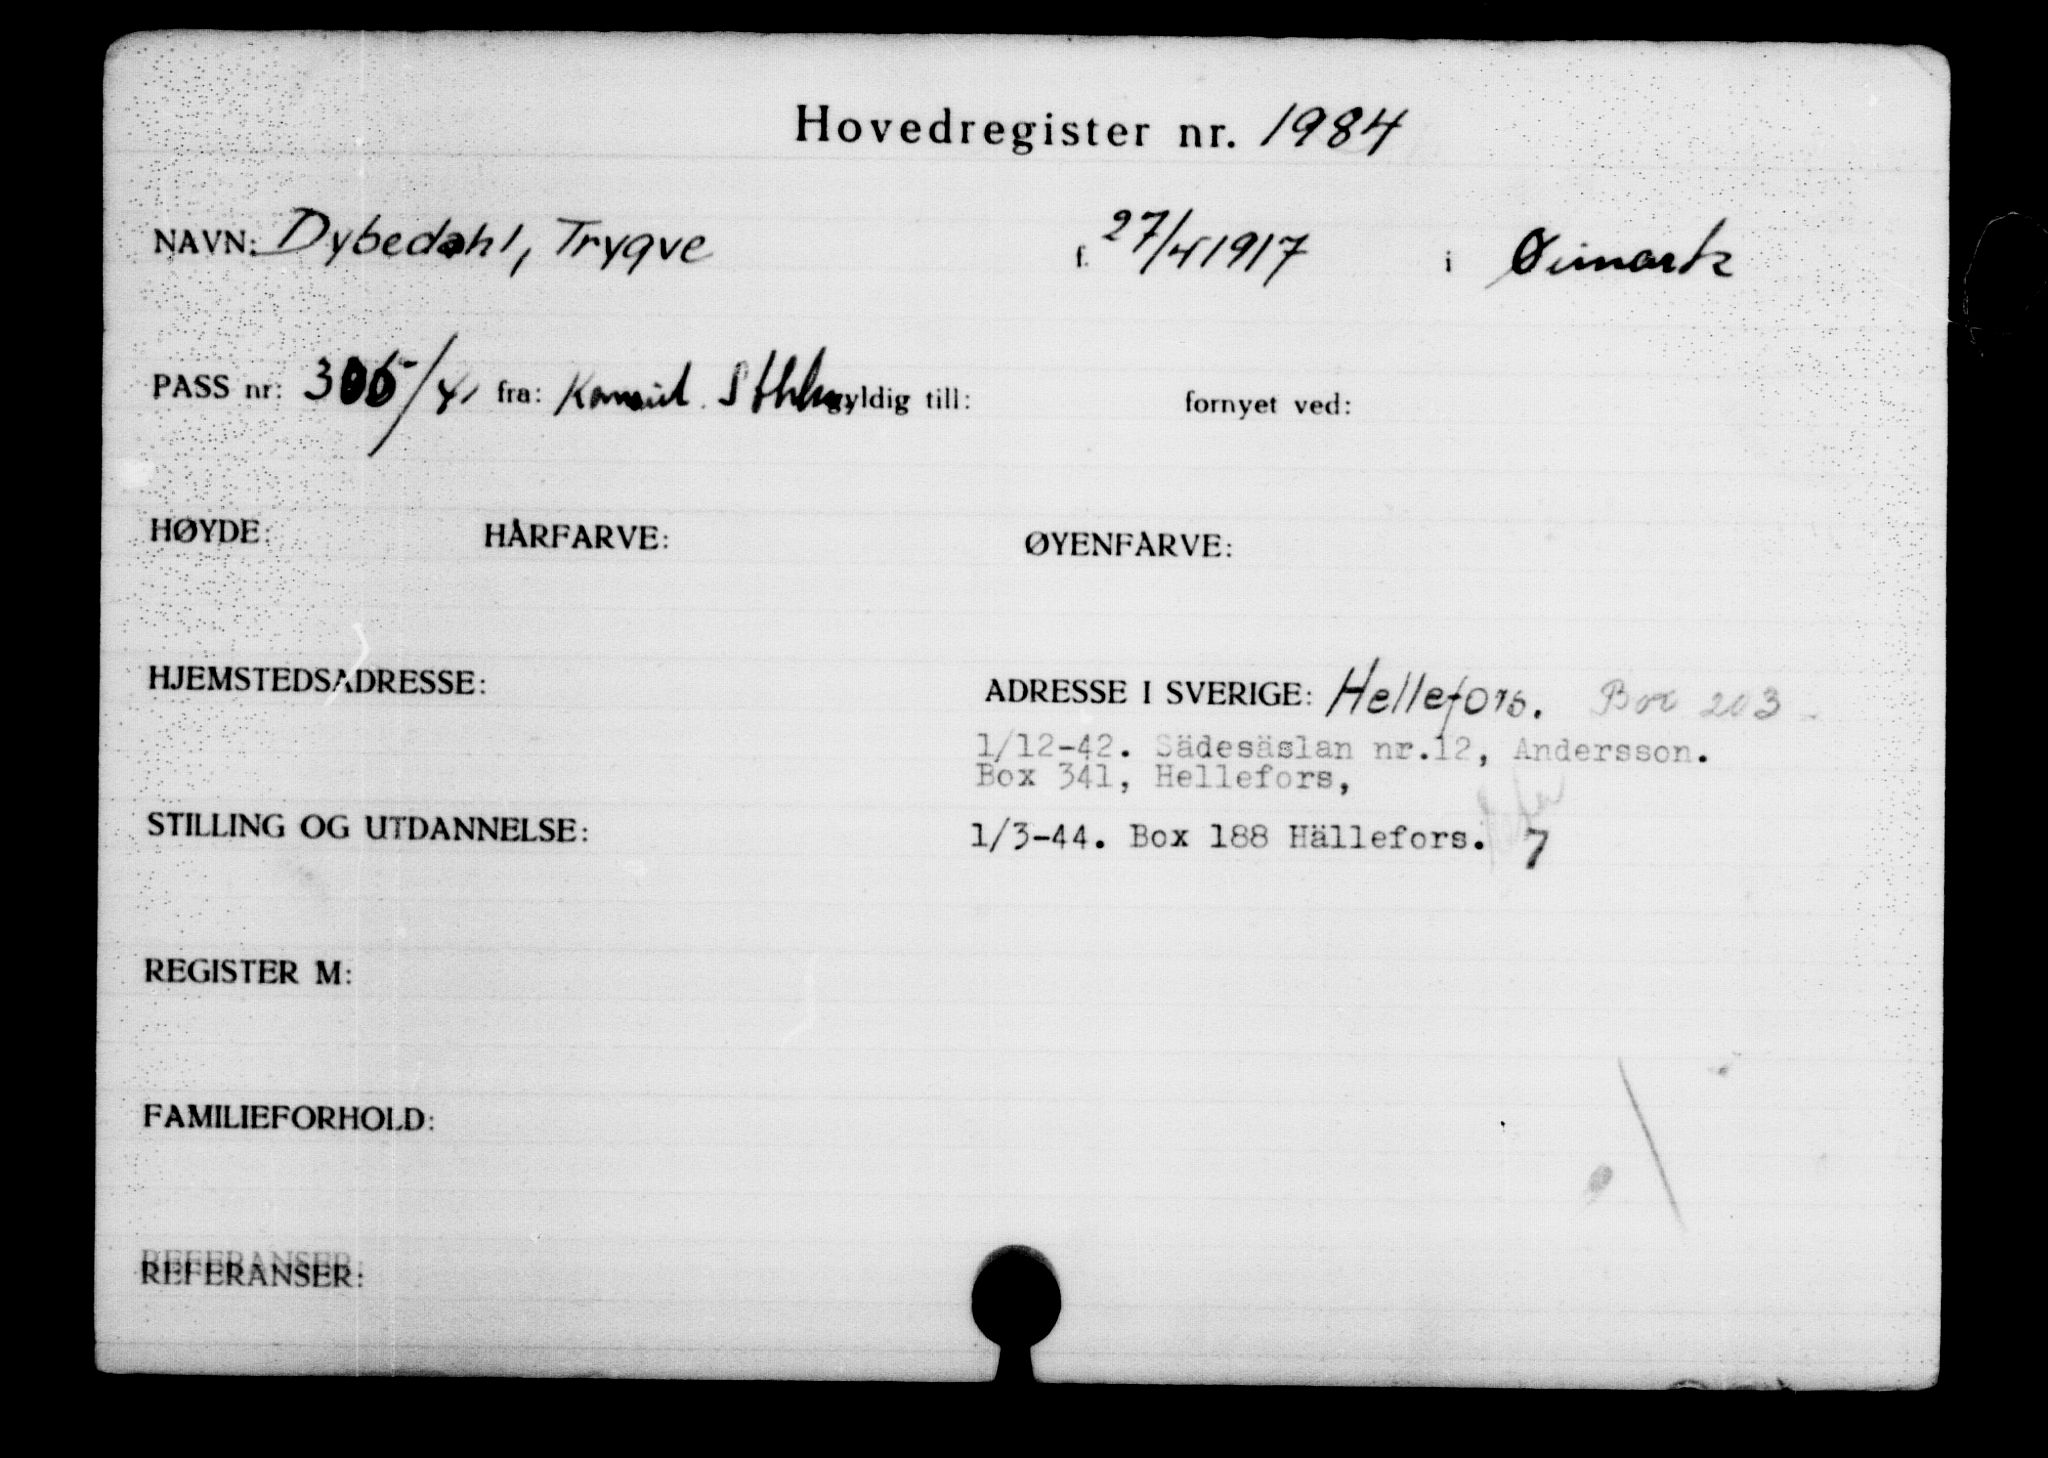 Hovedregister nr. 1984
NAVN: Dybedahl, Trygve f. 27/4 1917 i Øimark
PASS nr: 305/41 fra: Konsul. Sthlm. gyldig till: fornyet ved:
HØYDE: HÅRFARVE: ØYENFARVE:
HJEMSTEDSADRESSE: ADRESSE I SVERIGE: Hellefors. Box 203
1/12-42. Sädesäslan nr.12, Andersson.
Box 341, Hellefors,
STILLING OG UTDANNELSE: 1/3-44. Box 188 Hällefors. 7
REGISTER M:
FAMILIEFORHOLD:
REFERANSER: